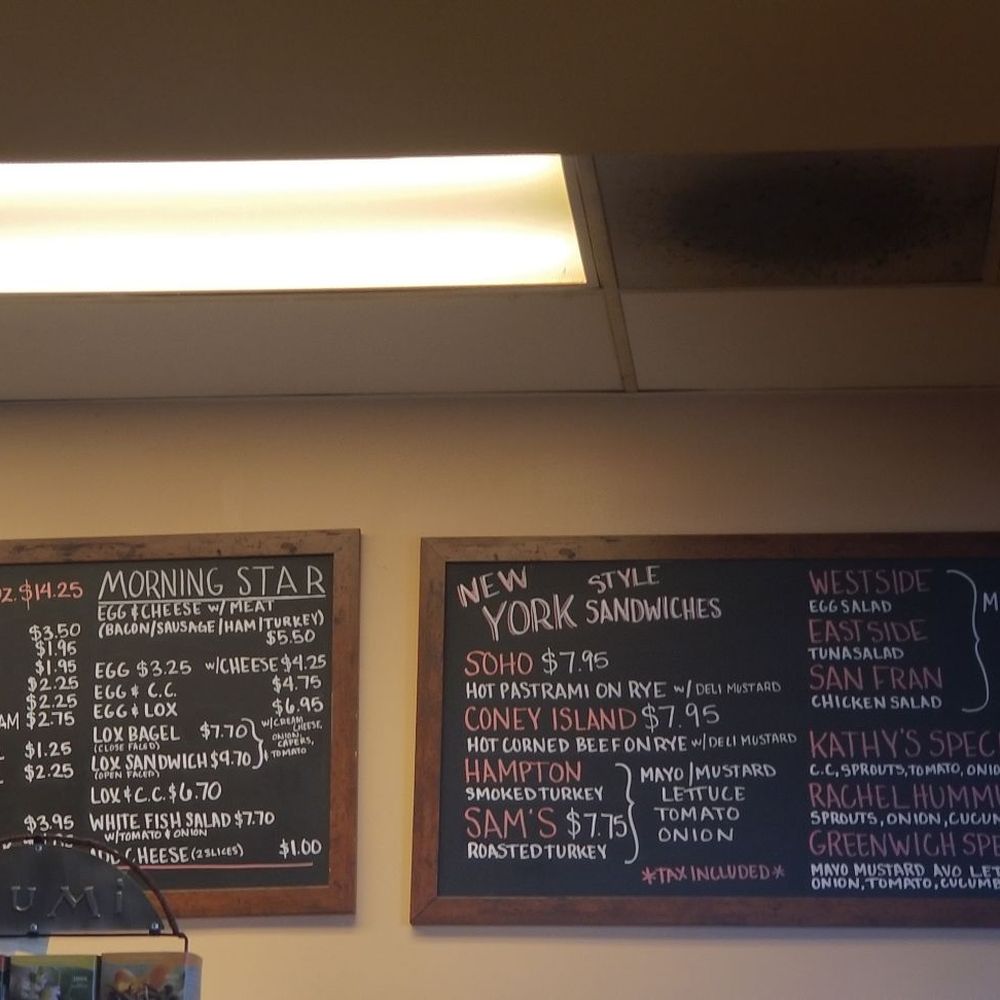 Z. $14.25
$3.50
$1.95
$1.95
$2.25
$2.25
AM $2.75
$1.25
$2.25
$3.95
MORNING STAR
EGG & CHEESE W/ MEAT
(BACON/SAUSAGE/HAM/TURKEY)
$5.50
EGG $3.25 W/CHEESE $4.25
EGG & C.C. $4.75
EGG & LOX $6.95
LOX BAGEL $7.70
(CLOSE FACED)
LOX SANDWICH $9.70
(OPEN FACED)
W/CREAM CHEESE,
ONION,
CAPERS,
TOMATO
LOX & C.C. $6.70
WHITE FISH SALAD $7.70
W/TOMATO & ONION
ADD CHEESE (2 SLICES) $1.00
UMi
NEW YORK STYLE
SANDWICHES
SOHO $7.95
HOT PASTRAMI ON RYE W/ DELI MUSTARD
CONEY ISLAND $7.95
HOT CORNED BEEF ON RYE W/ DELI MUSTARD
HAMPTON
SMOKED TURKEY
SAM'S $7.75
ROASTED TURKEY
MAYO/MUSTARD
LETTUCE
TOMATO
ONION
*TAX INCLUDED*
WESTSIDE
EGG SALAD
EASTSIDE
TUNA SALAD
SAN FRAN
CHICKEN SALAD
M
KATHY'S SPEC
C.C, SPROUTS, TOMATO, ONIO
RACHEL HUMM
SPROUTS, ONION, CUCUM
GREENWICH SPE
MAYO MUSTARD AVO LET
ONION, TOMATO, CUCUMB